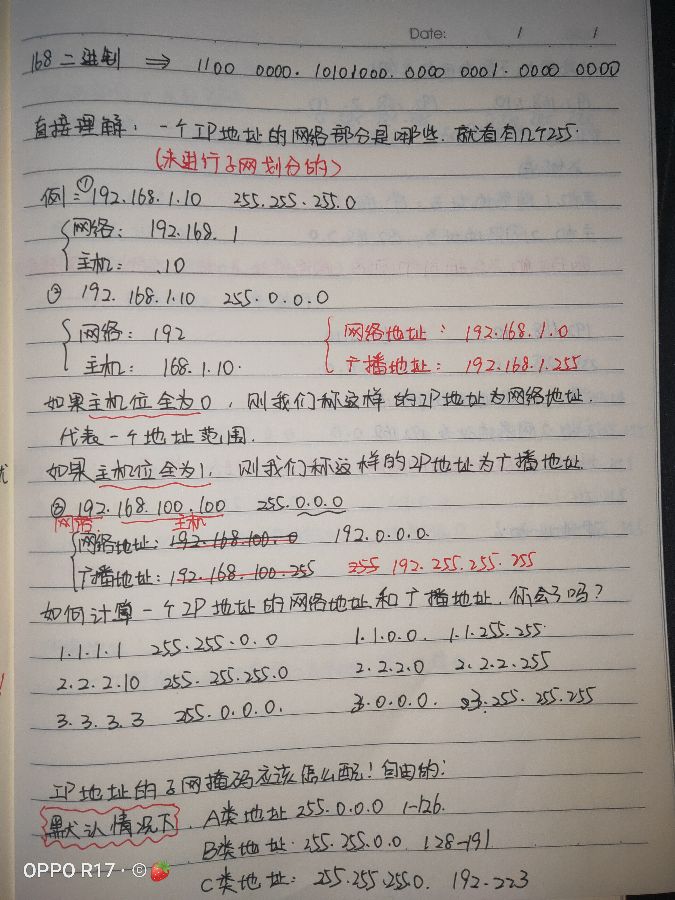 Date: / /
168 二进制 ⇒ 1100 0000. 10101000. 0000 0001. 0000 0000
直接理解: 一个IP地址的网络部分是哪些. 就看有几个255.
(未进行子网划分的)
例: ① 192.168.1.10 255.255.255.0
网络: 192.168.1
主机: .10
② 192.168.1.10 255.0.0.0
网络: 192 网络地址: 192.168.1.0
主机: 168.1.10. 广播地址: 192.168.1.255
如果主机位全为0, 则我们称这样的IP地址为网络地址.
代表一个地址范围.
如果主机位全为1, 则我们称这样的IP地址为广播地址.
③ 192.168.100.100 255.0.0.0
网络 主机
网络地址: 192.168.100.0 192.0.0.0.
广播地址: 192.168.100.255 255 192.255.255.255
如何计算一个IP地址的网络地址和广播地址. 你会了吗?
1.1.1.1 255.255.0.0 1.1.0.0. 1.1.255.255
2.2.2.10 255.255.255.0 2.2.2.0 2.2.2.255
3.3.3.3 255.0.0.0. 3.0.0.0. 3.255.255.255
IP地址的子网掩码应该怎么配! 自由的:
默认情况下. A类地址 255.0.0.0 1-126.
B类地址: 255.255.0.0. 128-191
C类地址: 255.255.255.0. 192-223
OPPO R17 · ©🍓